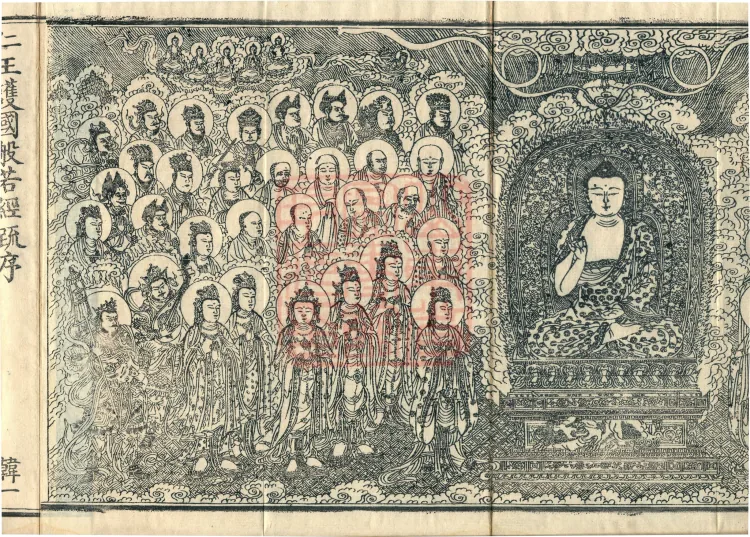 仁王護國般若經疏序
韓一